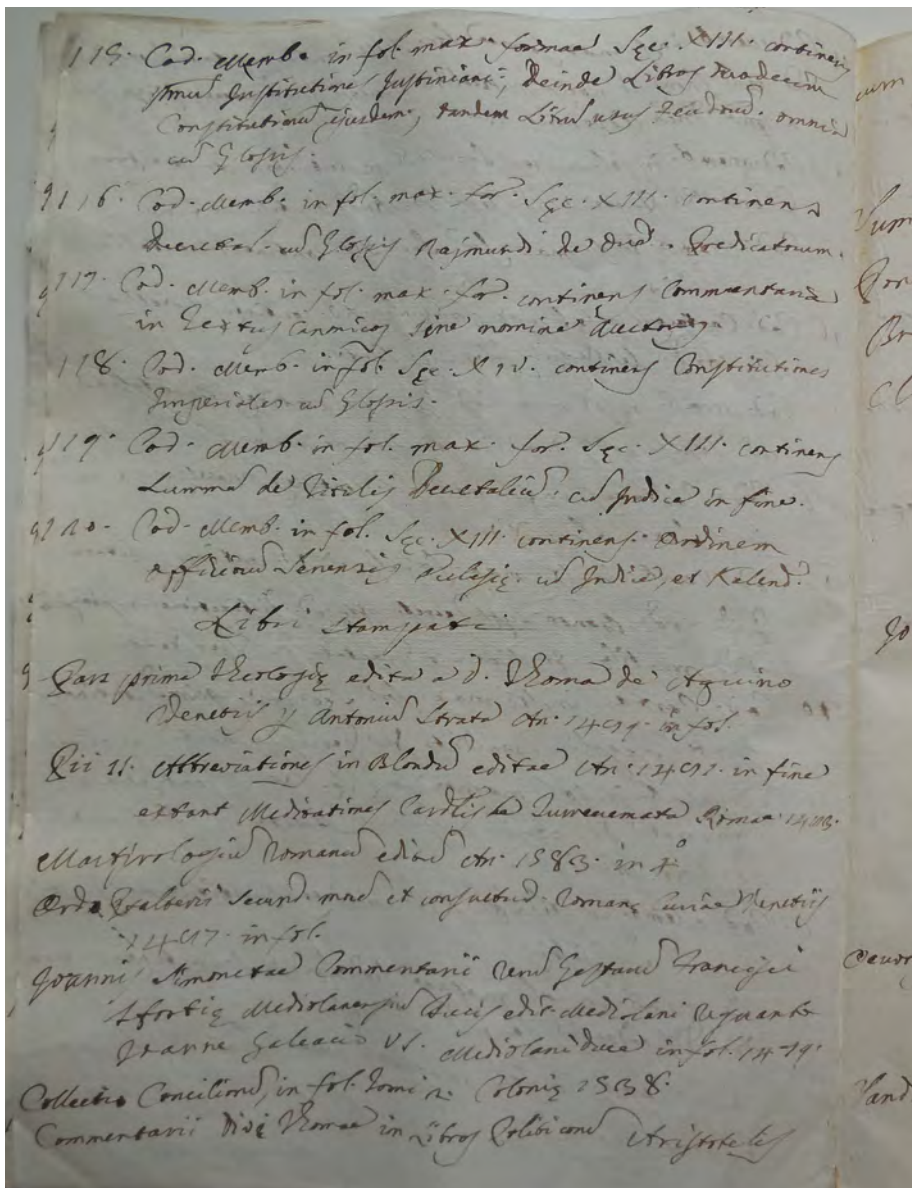 115. Cod. Memb. in fol. max. formae Sęc. XIII. continens
simul Institutiones Justiniani, deinde Libros duodecim
Constitutionū ejusdem, tandem Librū usus Feudorū. omnia
cū Glossis.
116. Cod. Memb. in fol. max. for. Sęc. XIII. continens
Decretal. cū Glossis Rajmundi de Ord. Predicatorum.
117. Cod. Memb. in fol. max. for. continens Commentaria
in Textus Canonicos sine nomine Auctoris.
118. Cod. Memb. in fol. Sęc. XIV. continens Constitutiones
Imperiales cū Glossis.
119. Cod. Memb. in fol. max. for. Sęc. XIII. continens
Summā de Titulis Decretaliū. cū Indice in fine.
120. Cod. Memb. in fol. Sęc. XIII. continens. Ordinem
officiorū Senensis Ecclesię. cū Indice, et Kalend.
Libri Stampati
Pars prima Theologię edita a d. Thoma de Aquino
Venetiis p Antoniū Strata An. in fol.
Pii II. Abbreviationes in Blondū editae An. in fine
extant Meditationes Cardlis de Turrecremata Romae
Martirologiū Romanū editū An. 1583. in 4º
Ordo Psalterii secund. morē et consuetud. Romanę Curiae Venetiis
in fol.
Joannis Simonetae Commentarii rerū Gestarū Francisci
Sfortię Mediolanensiū Ducis edit. Mediolani regnante
Joanne Galeacio VI. Mediolani duce in fol.
Collectio Conciliorū, in fol. Tomi 2. Colonię 1538.
Commentarii Divi Thomae in Libros Politicorū Aristotelis